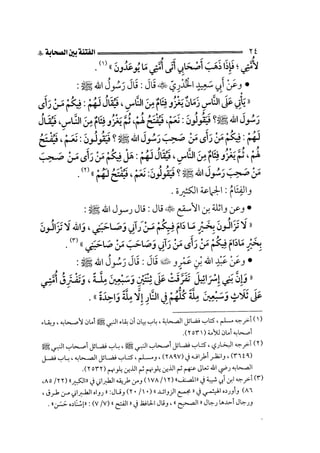 ٢٤ الفتنة بين الصحابة
لأُمَّتِي ؛ فَإِذَا ذَهَبَ أَصْحَابِي أَتَى أُمَّتِي مَا يُوعَدُونَ » (١) .
• وعَنْ أَبِي سَعِيدٍ الْخُدْرِيِّ قَالَ : قَالَ رَسُولُ اللهِ ﷺ :
« يَأْتِي عَلَى النَّاسِ زَمَانٌ يَغْزُو فِئَامٌ مِنَ النَّاسِ ، فَيُقَالُ لَهُمْ : فِيكُمْ مَنْ رَأَى
رَسُولَ اللهِ ﷺ ؟ فَيَقُولُونَ : نَعَمْ ، فَيُفْتَحُ لَهُمْ ، ثُمَّ يَغْزُو فِئَامٌ مِنَ النَّاسِ ، فَيُقَالُ
لَهُمْ : فِيكُمْ مَنْ رَأَى مَنْ صَحِبَ رَسُولَ اللهِ ﷺ ؟ فَيَقُولُونَ : نَعَمْ ، فَيُفْتَحُ
لَهُمْ ، ثُمَّ يَغْزُو فِئَامٌ مِنَ النَّاسِ ، فَيُقَالُ لَهُمْ : هَلْ فِيكُمْ مَنْ رَأَى مَنْ صَحِبَ
مَنْ صَحِبَ رَسُولَ اللهِ ﷺ ؟ فَيَقُولُونَ : نَعَمْ ، فَيُفْتَحُ لَهُمْ » (٢) .
والفِئَامُ : الجماعة الكثيرة .
• وعن واثلة بن الأسقع قال : قال رسول الله ﷺ :
« لَا تَزَالُونَ بِخَيْرٍ مَا دَامَ فِيكُمْ مَنْ رَآنِي وَصَاحَبَنِي ، وَاللهِ لَا تَزَالُونَ
بِخَيْرٍ مَادَامَ فِيكُمْ مَنْ رَأَى مَنْ رَآنِي وَصَاحَبَ مَنْ صَاحَبَنِي » (٣) .
• وعَنْ عَبْدِ اللهِ بْنِ عَمْرٍو قَالَ : قَالَ رَسُولُ اللهِ ﷺ :
« وَإِنَّ بَنِي إِسْرَائِيلَ تَفَرَّقَتْ عَلَى ثِنْتَيْنِ وَسَبْعِينَ مِلَّةً ، وَتَفْتَرِقُ أُمَّتِي
عَلَى ثَلَاثٍ وَسَبْعِينَ مِلَّةً كُلُّهُمْ فِي النَّارِ إِلَّا مِلَّةً وَاحِدَةً » .
(١) أخرجه مسلم ، كتاب فضائل الصحابة ، باب بيان أن بقاء النبي ﷺ أمان لأصحابه ، وبقاء
أصحابه أمان للأمة (٢٥٣١) .
(٢) أخرجه البخاري ، كتاب فضائل أصحاب النبي ﷺ ، باب فضائل أصحاب النبي ﷺ
(٣٦٤٩) ، وانظر أطرافه في (٢٨٩٧) ، ومسلم ، كتاب فضائل الصحابة ، باب فضل
الصحابة رضي الله تعالى عنهم ثم الذين يلونهم ثم الذين يلونهم (٢٥٣٢) .
(٣) أخرجه ابن أبي شيبة في «المصنف» (١٢/ ١٧٨) ومن طريقه الطبراني في «الكبير» (٢٢/ ٨٥،
٨٦) وأورده الهيثمي في «مجمع الزوائد» (١٠/ ٢٠) وقال : رواه الطبراني من طرق ،
ورجال أحدها رجال «الصحيح» ، وقال الحافظ في «الفتح» (٧/ ٧) : «إسْنَادُه حَسَن» .